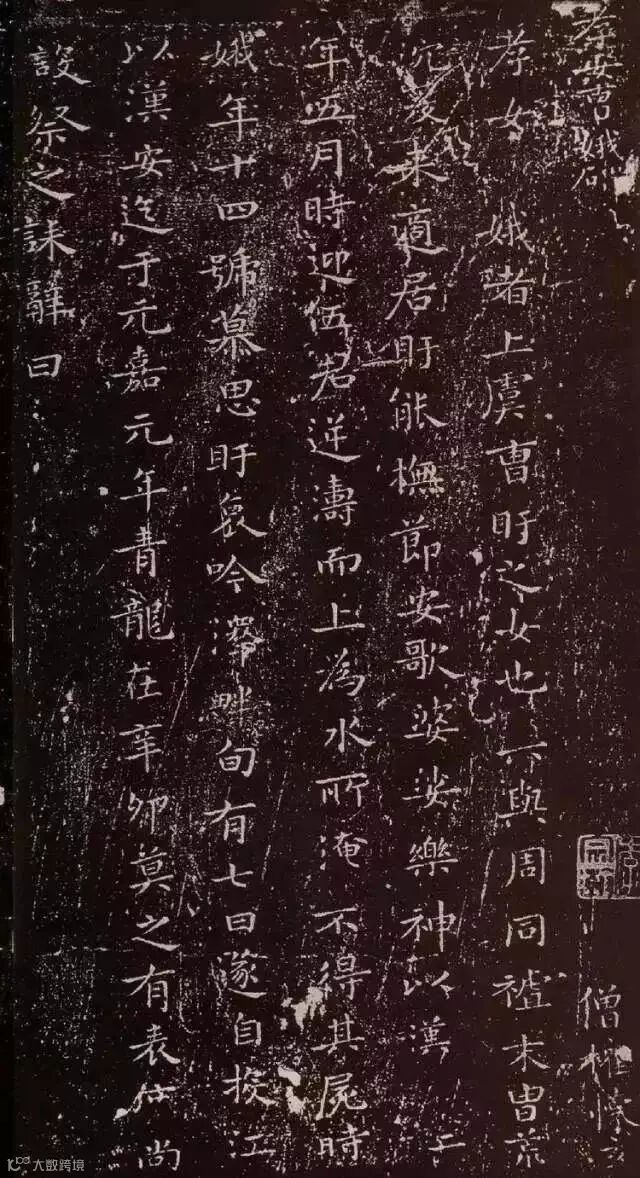 孝女曹娥碑
孝女　娥者上虞曹盱之女也　與周同　末胄荒
沉爰来適居盱能撫節安歌婆娑樂神以漢
年五月時迎伍君逆濤而上為水所淹不得其屍時
娥年十四號慕思盱哀吟澤畔旬有七日遂自投江
以漢安迄于元嘉元年青龍在辛卯莫之有表　尚
設祭之誄辭曰
僧權
大数跨境